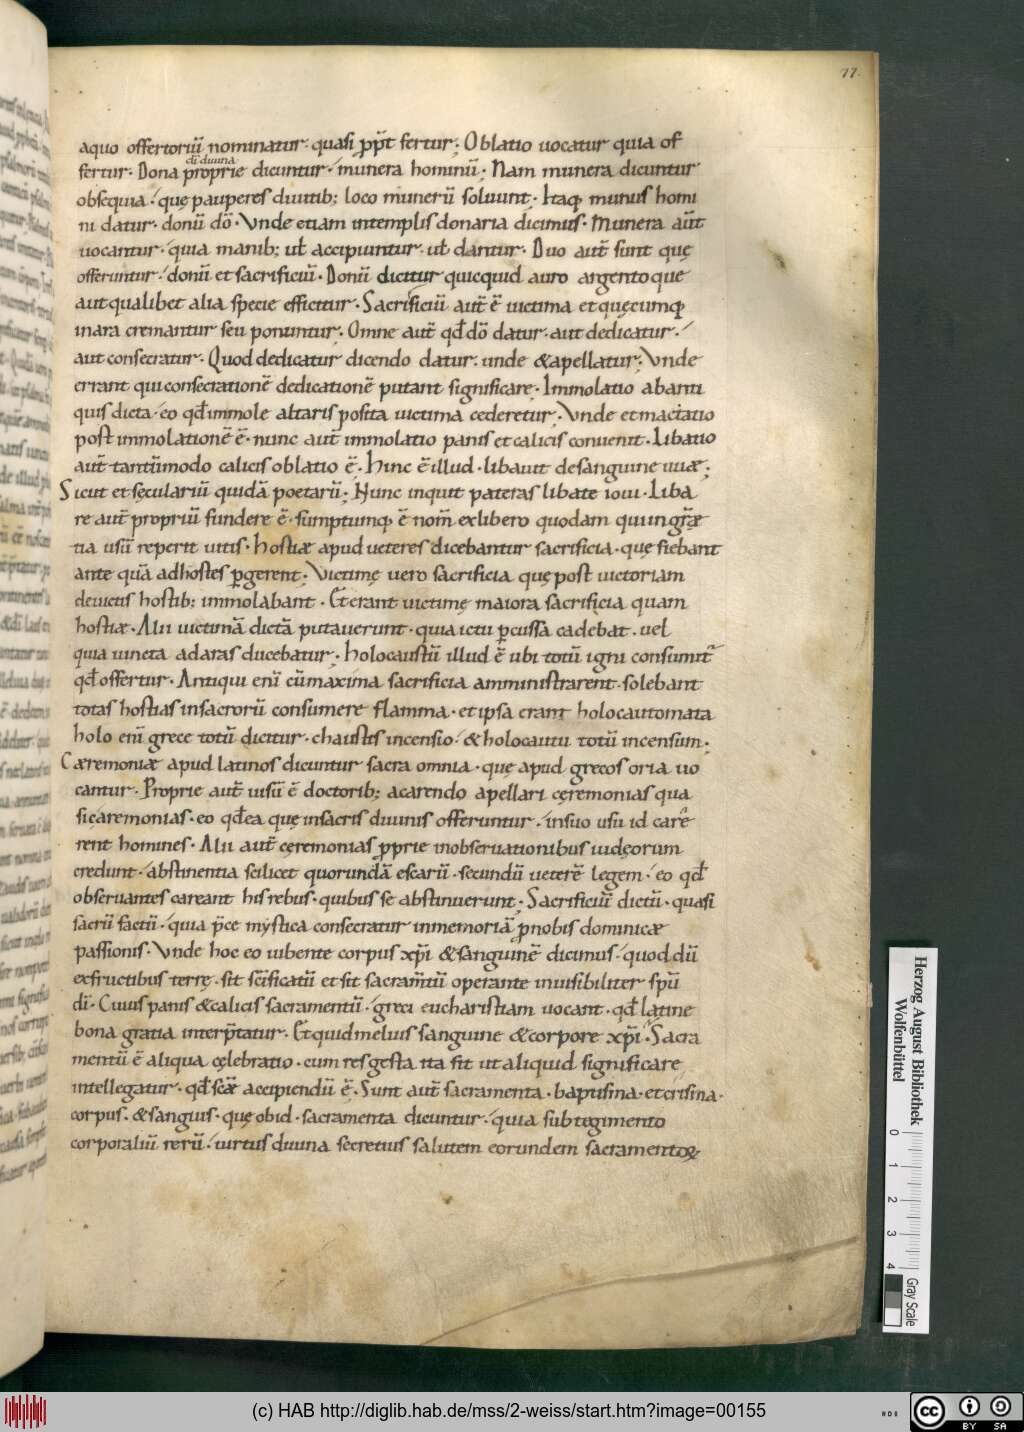 77.
aquo offertoriū nominatur· quasi p̄p̄t fertur; Oblatio uocatur quia of
di diuina
fertur· Dona proprie dicuntur· munera hominū; Nam munera dicuntur
obsequia· quę pauperes diuitib; loco munerū soluunt· Itaq; munus homi
ni datur· donū dō· Vnde etiam intemplis donaria dicimus· Munera aūt
uocantur· quia manib; uł accipiuntur· uł dantur· Duo aut̄ sunt quę
offeruntur· donū et sacrificiū· Donū dicitur quicquid auro argentoque
aut qualibet alia specie efficitur· Sacrificiū aut̄ ē uictima et quęcumq;
inara cremantur seu ponuntur; Omne aut̄ qđ dō datur· aut dedicatur·
aut consecratur· Quod dedicatur dicendo datur· unde &apellatur; Vnde
errant qui consecrationē dedicationē putant significare· Immolatio abanti
quis dicta· eo qđ immole altaris posita uictima cederetur; Vnde et mactatio
post immolationē ē· nunc aut̄ immolatio panis et calicis conuenit· Libatio
aut̄ tantūmodo calicis oblatio ē· Hinc ē illud· libauit desanguine uuæ;
Sicut et sęculariū quidā poetarū; Nunc inquit pateras libate ioui· Liba
re aut̄ propriū fundere ē· sumptumq; ē nom̄ exlibero quodam qui ingr̄æ
tia usū reperit uitis· Hostiæ apud ueteres dicebantur sacrificia· quę fiebant
ante quā adhostes ꝑgerent; Victimę uero sacrificia quę post uictoriam
deuictis hostib; immolabant· Et erant uictimę maiora sacrificia quam
hostiæ· Alii uictimā dictā putauerunt· quia ictu ꝑcussa cadebat· uel
quia uincta adaras ducebatur; holocaustū illud ē ubi totū igni consumit᷑
qđ offertur· Antiqui enī cū maxima sacrificia amministrarent· solebant
totas hostias insacrorū consumere flamma· et ipsa erant holocautomata
holo enī grece totū dicitur· chaustis incensio· & holocautū totū incensum;
Cæremoniæ apud latinos dicuntur sacra omnia· quę apud grecos oria uo
cantur· Proprie aut̄ uisū ē doctorib; acarendo apellari cęremonias qua
si cęaremonias· eo qđ ea quę insacris diuinis offeruntur· insuo usu id carē
rent homines· Alii aut̄ cęremonias ꝓprie inobseruationibus iudęorum
credunt· abstinentia scilicet quorundā escarū· secundū ueterē legem· eo qđ
obseruantes careant his rebus· quibus se abstinuerunt; Sacrificiū dictū· quasi
sacrū factū· quia p̄ce mystica consecratur inmemoriā ꝓnobis dominicæ
passionis· Vnde hoc eo iubente corpus xp̄i &sanguinē dicimus· quod dū
exfructibus terrę· sit sc̄ificatū et sit sacram̄tū operante inuisibiliter sp̄ū
dī· Cuius panis &calicis sacramentū· greci eucharistiam uocant· qđ latine
bona gratia interp̄tatur· Et quid melius sanguine &corpore xp̄i· Sacra
mentū ē aliqua cęlebratio· cum res gesta ita fit ut aliquid significare
intellegatur· qđ sc̄æ accipiendū ē· Sunt aut̄ sacramenta· baptisma· et crisma·
corpus· &sanguis· quę obid· sacramenta dicuntur· quia sub tegimento
corporaliū rerū· uirtus diuina secretius salutem eorundem sacramentoꝝ
Herzog August Bibliothek
Wolfenbüttel
0 1 2 3 4
Gray Scale
(c) HAB http://diglib.hab.de/mss/2-weiss/start.htm?image=00155
cc BY SA